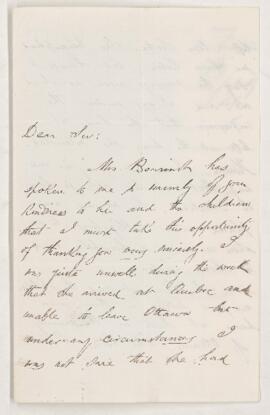 Dear Sir:
Mrs has
spoken to me so warmly of your
kindness to her and the children
that I must take this opportunity
of thanking you very sincerely. I
was quite unwell during the week
that she arrived at Quebec and
unable to leave Ottawa
under any circumstances I
was not sure that she had